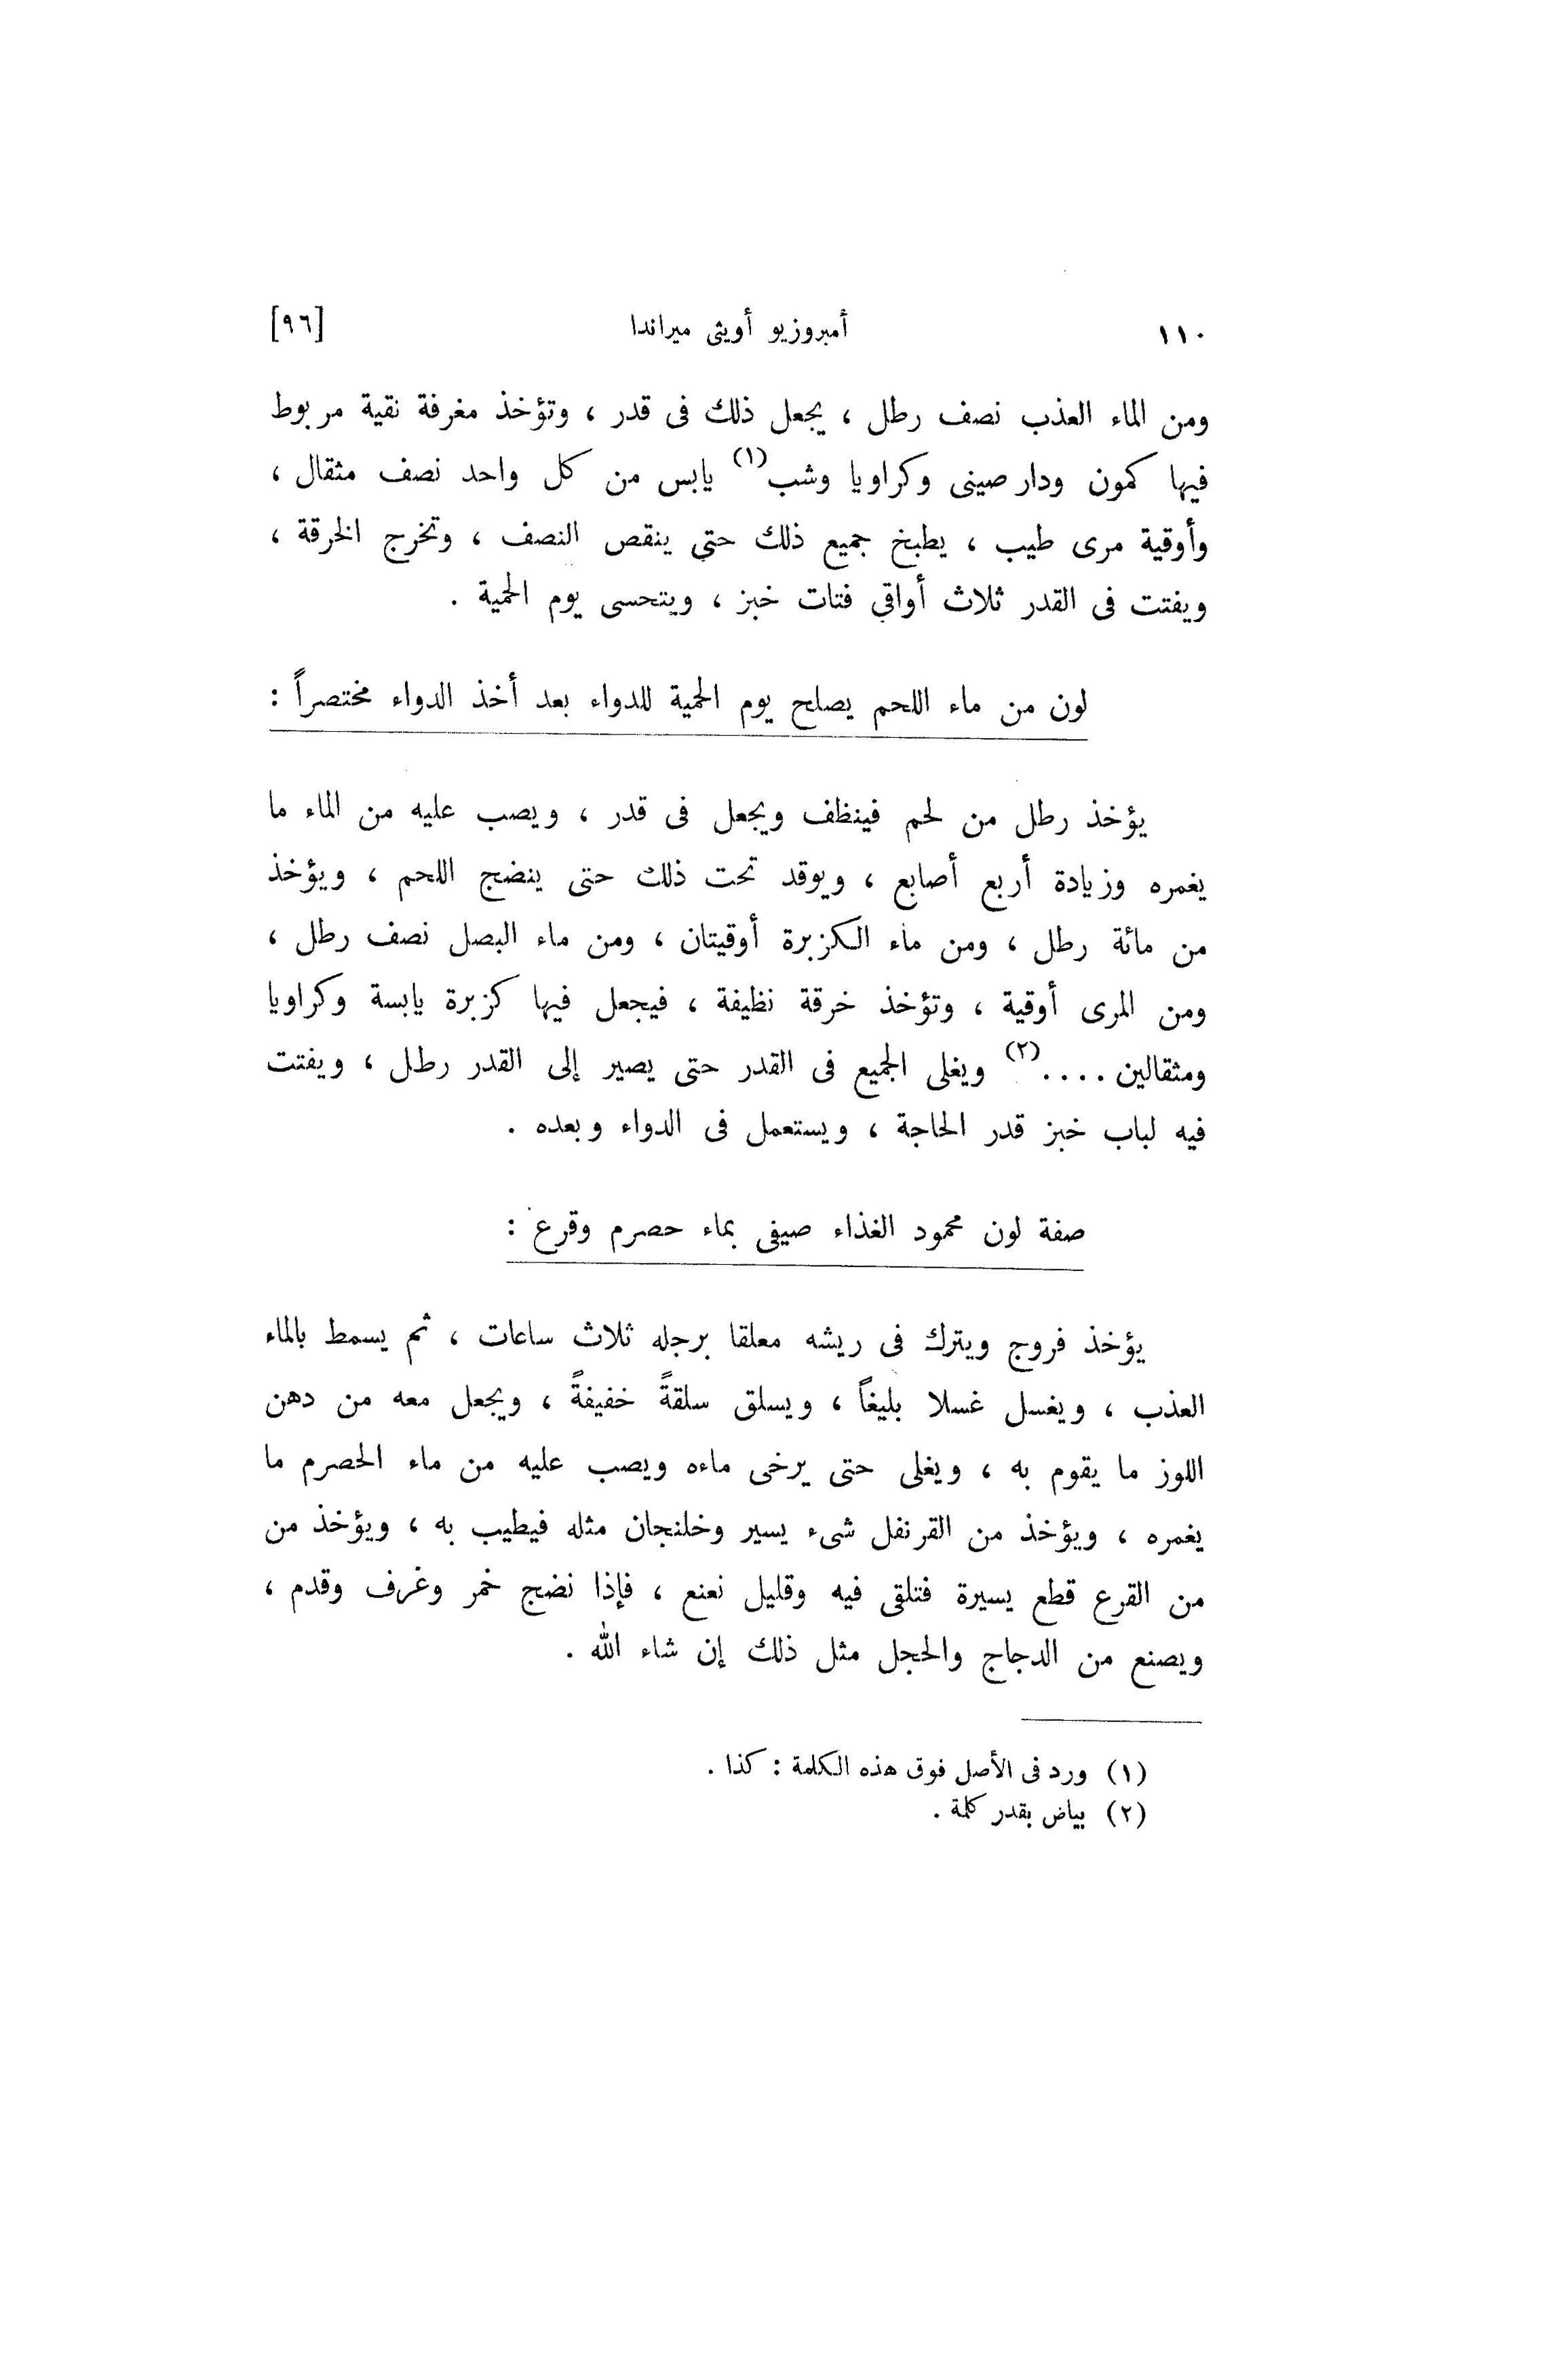 ١١٠ أمبروزيو أويثى ميراندا [٩٦]
ومن الماء العذب نصف رطل ، يجعل ذلك فى قدر ، وتؤخذ مغرفة نقية مربوط
فيها كمون ودار صينى وكراويا وشب(١) يابس من كل واحد نصف مثقال ،
وأوقية مرى طيب ، يطبخ جميع ذلك حتي ينقص النصف ، وتخرج الخرقة ،
ويفتت فى القدر ثلاث أواقي فتات خبز ، ويتحسى يوم الحمية .
لون من ماء اللحم يصلح يوم الحمية للدواء بعد أخذ الدواء مختصراً :
يؤخذ رطل من لحم فينظف ويجعل فى قدر ، ويصب عليه من الماء ما
يغمره وزيادة أربع أصابع ، ويوقد تحت ذلك حتى ينضج اللحم ، ويؤخذ
من مائة رطل ، ومن ماء الكزبرة أوقيتان ، ومن ماء البصل نصف رطل ،
ومن المرى أوقية ، وتؤخذ خرقة نظيفة ، فيجعل فيها كزبرة يابسة وكراويا
ومثقالين ....(٢) ويغلى الجميع فى القدر حتى يصير إلى القدر رطل ، ويفتت
فيه لباب خبز قدر الحاجة ، ويستعمل فى الدواء وبعده .
صفة لون محمود الغذاء صيفى بماء حصرم وقرع :
يؤخذ فروج ويترك فى ريشه معلقا برجله ثلاث ساعات ، ثم يسمط بالماء
العذب ، ويغسل غسلا بليغاً ، ويسلق سلقةً خفيفةً ، ويجعل معه من دهن
اللوز ما يقوم به ، ويغلى حتى يرخى ماءه ويصب عليه من ماء الحصرم ما
يغمره ، ويؤخذ من القرنفل شىء يسير وخلنجان مثله فيطيب به ، ويؤخذ من
من القرع قطع يسيرة فتلقى فيه وقليل نعنع ، فإذا نضج خمر وغرف وقدم ،
ويصنع من الدجاج والحجل مثل ذلك إن شاء الله .
(١) ورد فى الأصل فوق هذه الكلمة : كذا .
(٢) بياض بقدر كلمة .